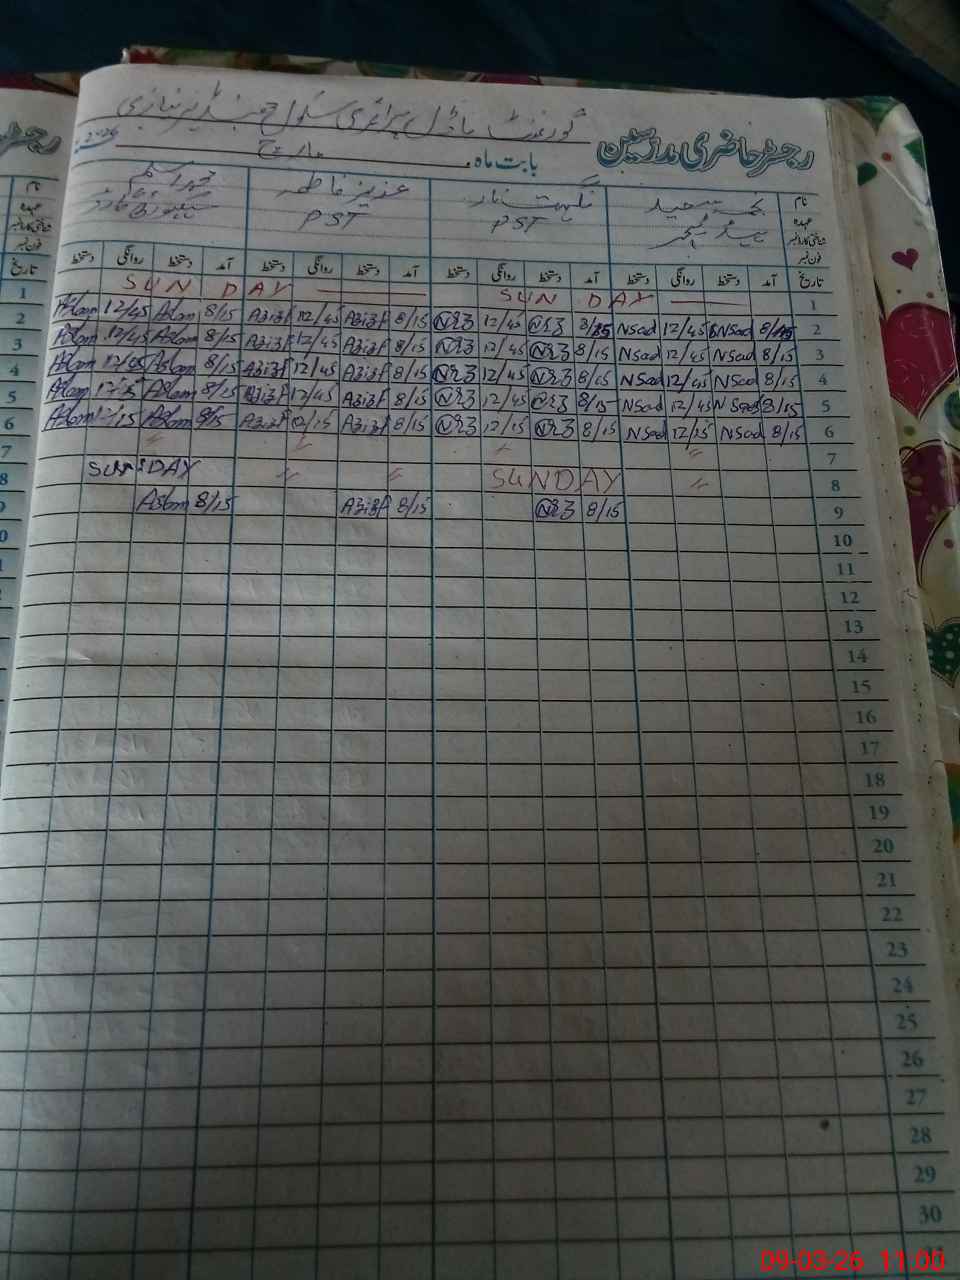 گورنمنٹ ماڈل پرائمری سکول
رجسٹر حاضری مدرسین بابت ماہ مارچ 2026
نام نجمہ سعید نگہت ناز عزیز فاطمہ محمد اسلم
عہدہ ہیڈ ٹیچر PST PST سیکیورٹی گارڈ
شناختی کارڈ نمبر
فون نمبر
تاریخ آمد دستخط روانگی دستخط آمد دستخط روانگی دستخط آمد دستخط روانگی دستخط آمد دستخط روانگی دستخط
1 SUN DAY SUN DAY
2 8/15 NSad 12/45 NSad 8/15 12/45 8/15 Azizf 12/45 Azizf 8/15 Aslam 12/45 Aslam
3 8/15 NSad 12/45 NSad 8/15 12/45 8/15 Azizf 12/45 Azizf 8/15 Aslam 12/45 Aslam
4 8/15 NSad 12/45 NSad 8/15 12/45 8/15 Azizf 12/45 Azizf 8/15 Aslam 12/45 Aslam
5 8/15 NSad 12/45 NSad 8/15 12/45 8/15 Azizf 12/45 Azizf 8/15 Aslam Aslam
6 8/15 NSad 12/15 NSad 8/15 12/15 8/15 Azizf 12/15 Azizf 8/15 Aslam Aslam
7 〃 〃
8 〃 SUNDAY 〃 〃 SUNDAY
9 8/15 8/15 Azizf 8/15 Aslam
10
11
12
13
14
15
16
17
18
19
20
21
22
23
24
25
26
27
28
29
30
09-03-26 11:00